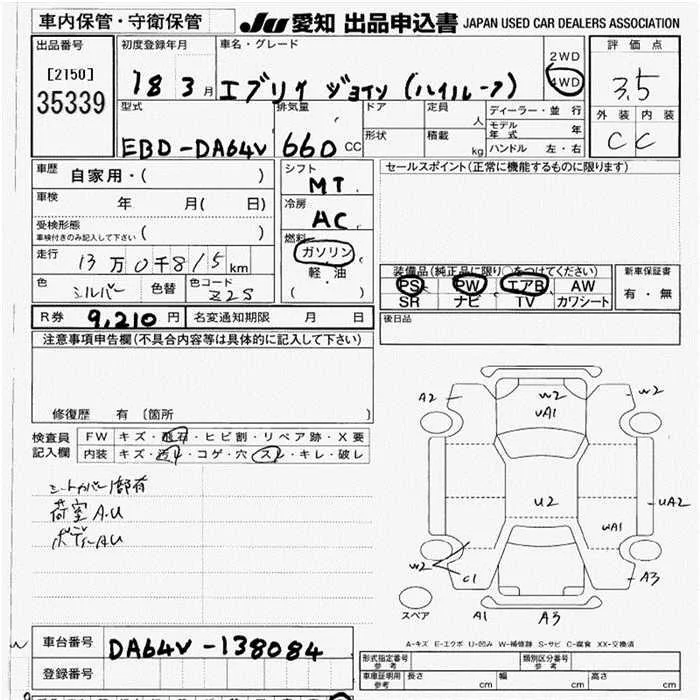 車内保管・守衛保管 JU 愛知 出品申込書 JAPAN USED CAR DEALERS ASSOCIATION
出品番号 初度登録年月 車名・グレード 2WD 評価点
[2150] 18 3月 エブリイ ジョイン (ハイルーフ) 4WD 3.5
35339
型式 排気量 ドア 定員 人 ディーラー・並行 外装 内装
モデル年式 年
EBD-DA64V 660 CC 形状 積載 kg ハンドル 左・右 C C
車歴 自家用・( ) シフト MT セールスポイント(正常に機能するものに限ります)
車検 年 月( 日) 冷房 AC
受検形態
車検付きのみ記入して下さい ( )
燃料
走行 13万0千815km ガソリン
軽・油
( )
装備品(純正品に限り○をつけてください) 新車保証書
色 シルバー 色替 色コード Z2S
PS PW エアB AW 有・無
SR ナビ TV カワシート
R券 9,210円 名変通知期限 月 日 後日品
注意事項申告欄(不具合内容等は具体的に記入して下さい)
修復歴 有 〔箇所 〕
検査員記入欄 FW キズ・飛石・ヒビ割・リペア跡・X要
内装 キズ・汚レ・コゲ・穴・スレ・キレ・破レ
シートカバー1部有
荷室A.U
ボディーAU
A2 W2 W2
UA1
U2 UA2
UA1
W2 C1 A3
スペア A1 A3
A-キズ E-エクボ U-凹み W-補修跡 S-サビ C-腐食 XX-交換済
車台番号 DA64V-138084
登録番号
形式指定番号 参考 類別区分番号 参考
車庫証明用 参考 長さ cm 幅 cm 高さ cm